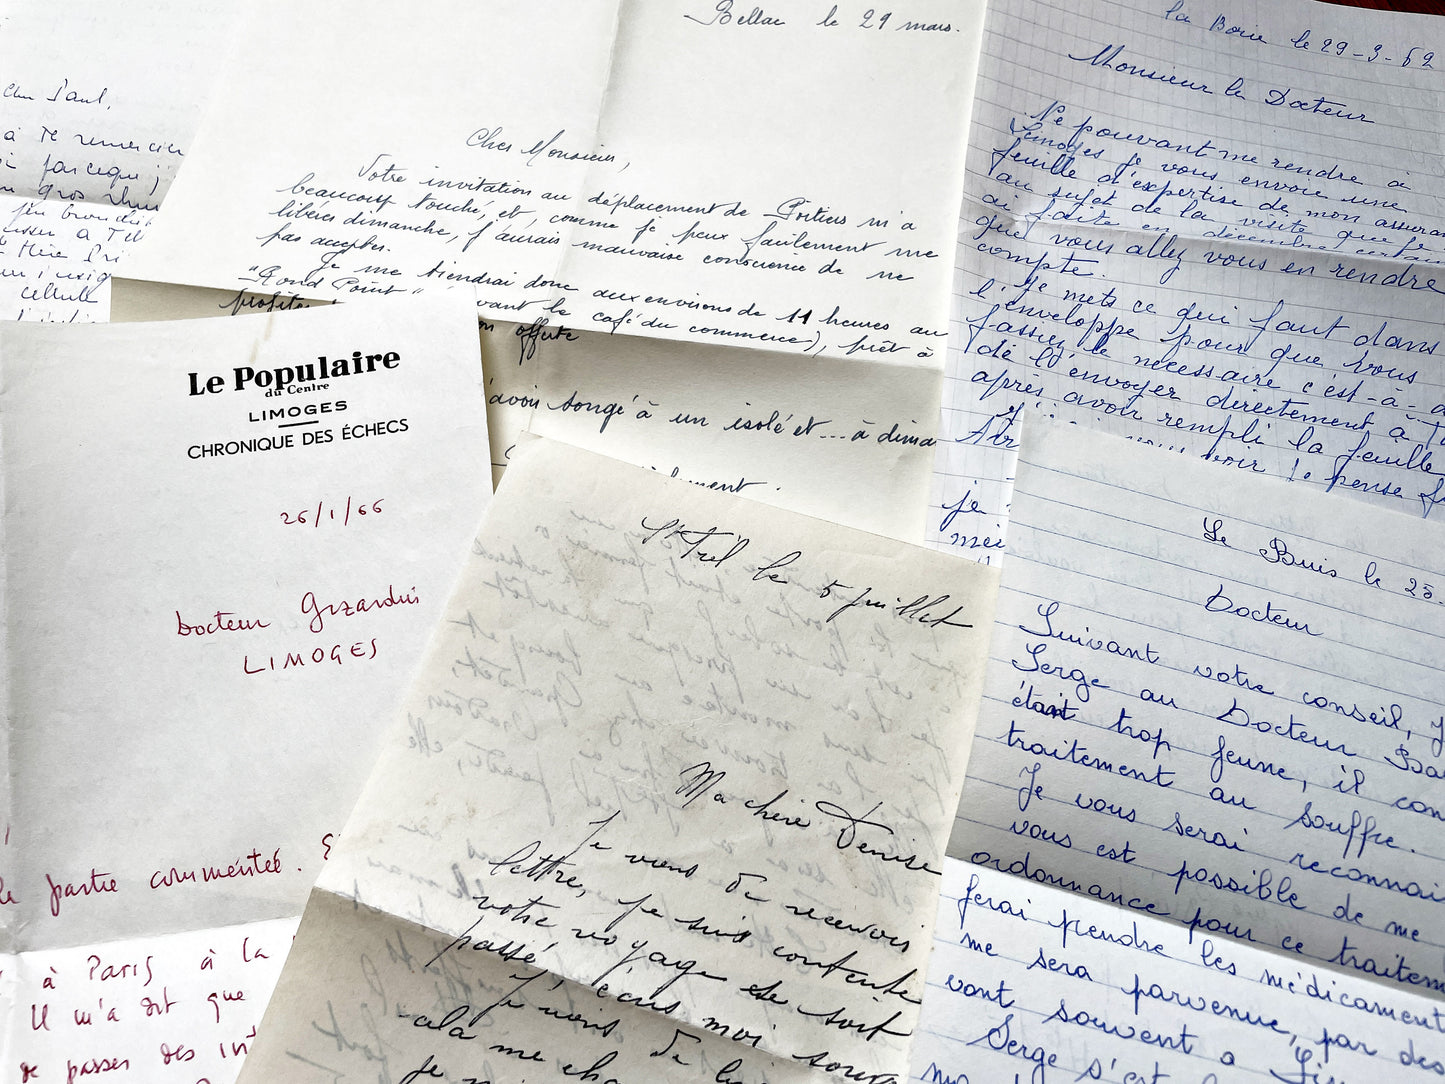 Paul,
à te remercier
parceque j'
gros rhu
cellule
Bellac le 29 mars.
Cher Monsieur,
Votre invitation au déplacement de Poitiers m'a
beaucoup touché, et, comme je peux facilement me
libérer dimanche, j'aurais mauvaise conscience de ne
pas accepter.
Je me tiendrai donc aux environs de 11 heures au
"Rond Point" vant le café du commerce), prêt à
profiter offerte
avoir songé à un isolé et... à dima
le 29-3-62
Monsieur le Docteur
Ne pouvant me rendre à
Limoges je vous envoie une
feuille d'expertise de mon assuran
au sujet de la visite que je
ai faite en décembre
que vous allez vous en rendre
compte.
Je mets ce qui faut dans
l'enveloppe pour que vous
fassiez le nécessaire c'est-à-d
de l'envoyer directement à
après avoir rempli la feuille
voir je pense
je
Le Populaire
du Centre
LIMOGES
CHRONIQUE DES ÉCHECS
26/1/66
Docteur
LIMOGES
partie commentée.
à Paris à la
Il m'a dit que
de passer des int
St Trel le 5 juillet
Ma chère Denise
Je viens de recevoir
lettre, je suis contente
votre voyage se soit
passé, écris moi
Je viens de
me
Le Buis le 25
Docteur
Suivant votre conseil, j
Serge au Docteur
était trop jeune, il con
traitement au souffre.
Je vous serai reconnai
vous est possible de me
ordonnance pour ce traitem
ferai prendre les médicament
me sera parvenue, par des
vont souvent a
Serge s'est